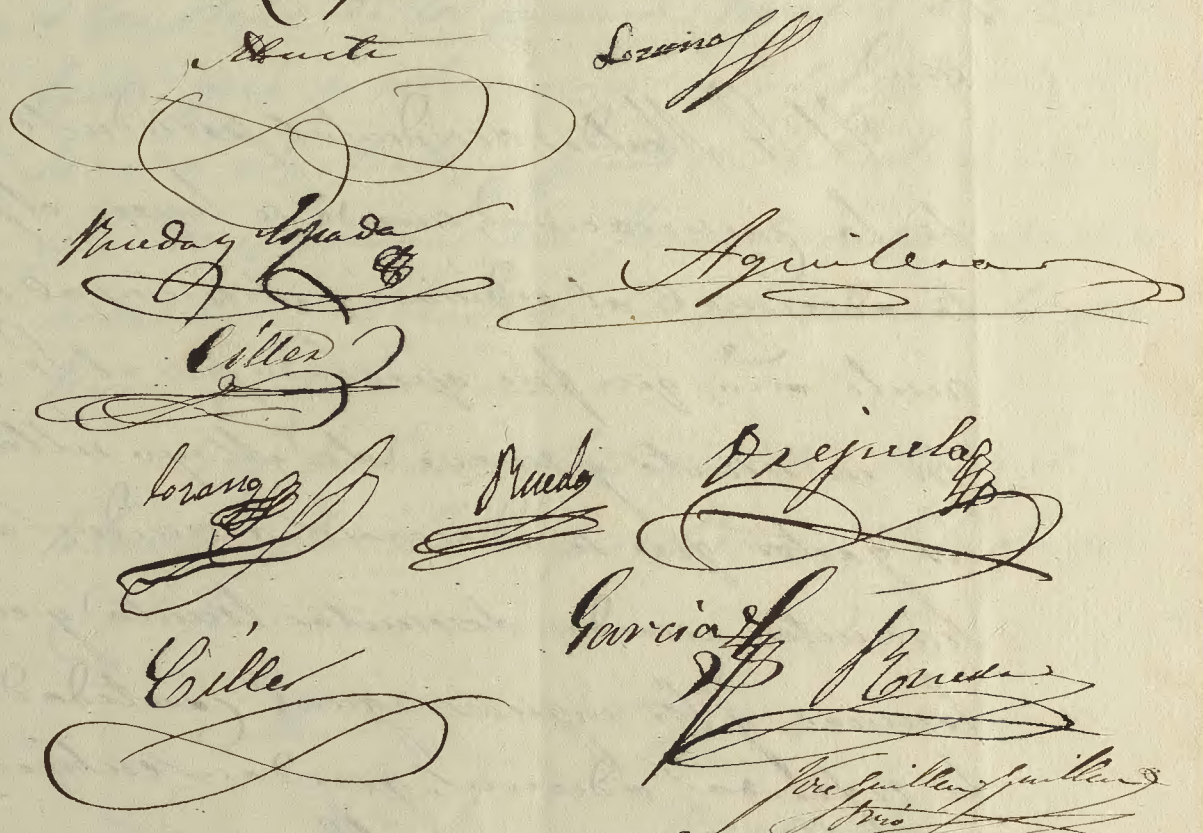 Lozano
Rueda y Losada
Aguilera
Ciller
Lozano Rueda Orejuela
García
Ciller Rueda
Jose Guillen Guillen
Srio